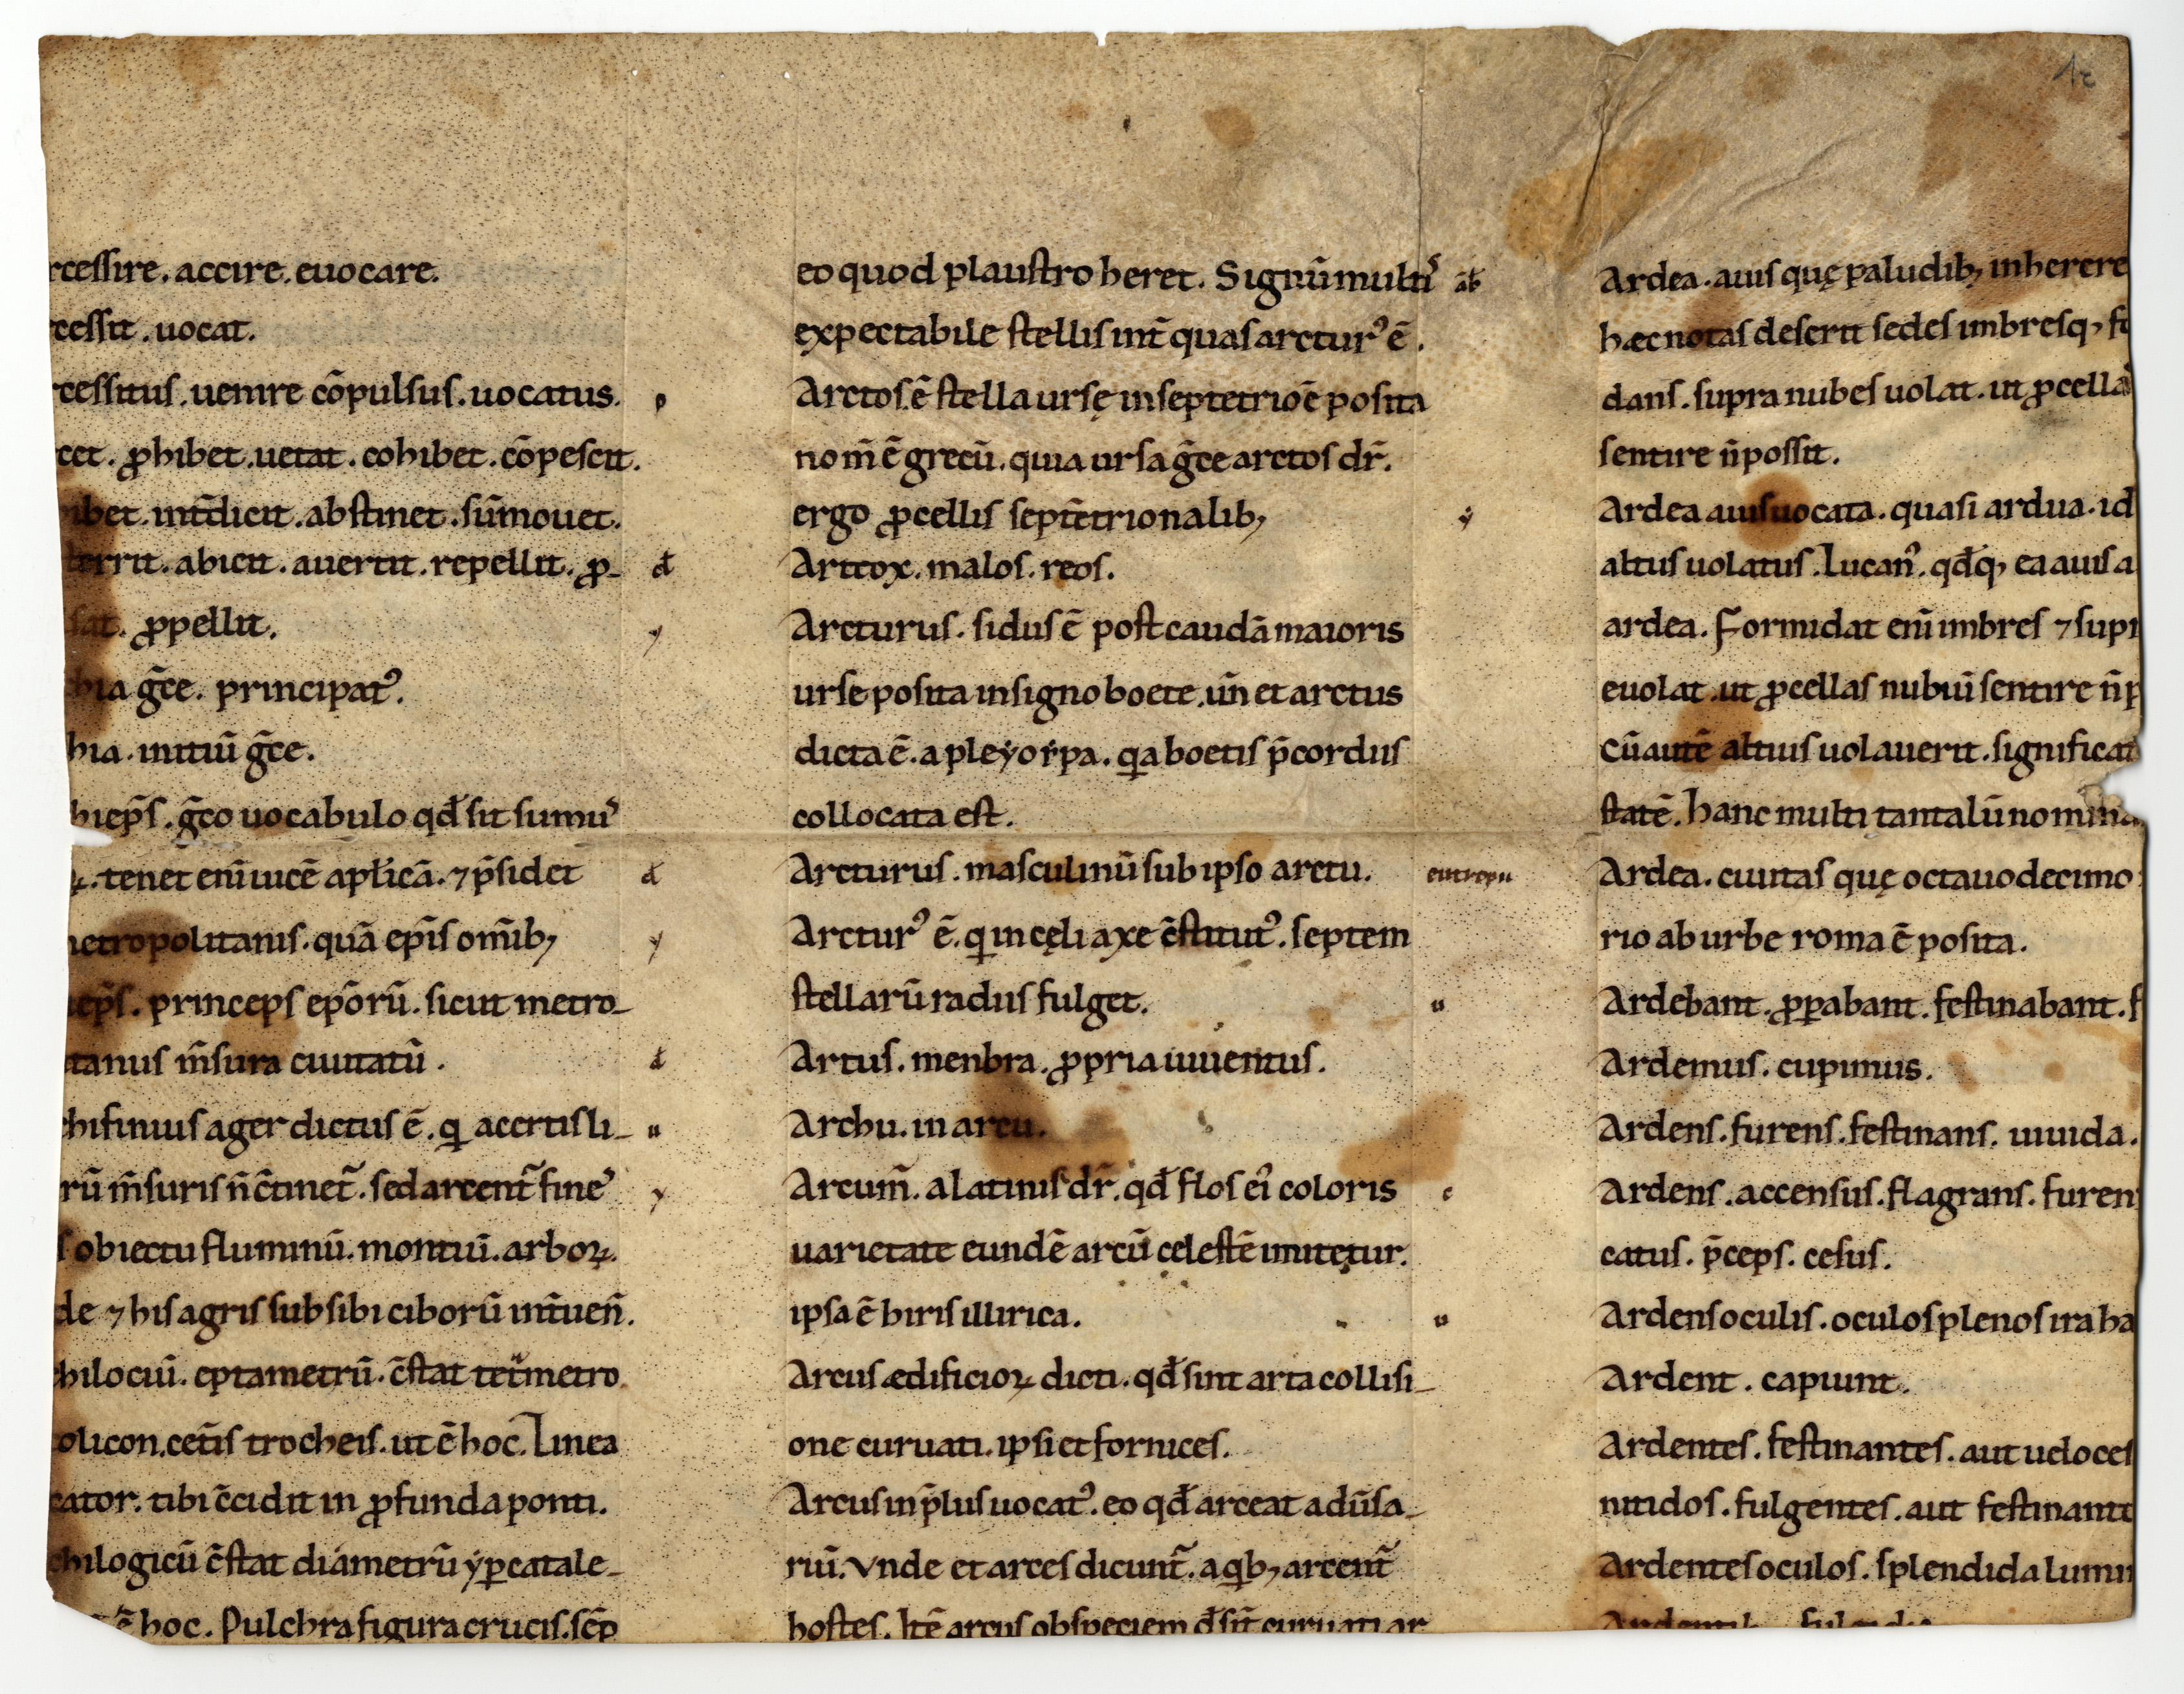 rcessire. accire. euocare.
cessit. uocat.
cessitus. uenire cōpulsus. uocatus.
cet. ꝓhibet. uetat. cohibet. cōpescit.
ibet. int̄dicit. abstinet. sūmouet.
territ. abicit. auertit. repellit. ꝓ-
sat. ꝓpellit.
hia ḡce. principatꝰ.
hia. initiū ḡce.
hiep̄s. ḡco uocabulo qđ sit sumuˢ
ꝝ. tenet eni᷑ uicē aplicā. ⁊ p̄sidet
metropolitanis. quā epīs om̄ibꝫ
iep̄s. princeps epōrū. sicut metro-
tanus m̄sura ciuitatū.
chifinius ager dictus ē. ꝗ a certis li-
rū m̄suris n̄ c̄tinet᷑. sed arcent᷑ fineˢ
s obiectu fluminū. montiū. arboꝝ.
de ⁊ his agris subsibi ciborū int̄uen̄.
hilociū. eptametrū. c̄stat tet᷑metro
olicon. cet̄is trocheis. ut ē hoc. Linea
cator. tibi c̄cidit in ꝓfunda ponti.
chilogicū c̄stat diametrū ẏꝑcatale-
ē hoc. Pulchra figura crucis. scēp
p
đ
y
đ
y
đ
u
y
eo quod plaustro heret. Signū multiˢ
expectabile stellis int̄ quas arcturꝰ ē.
Arctos ē stella ursę in septetrioē posita
nom̄ ē grecū. quia ursa ḡce arctos dr̄.
ergo ꝓcellis septētrionalibꝫ
Artcox. malos. reos.
Arcturus. sidus ē post caudā maioris
urse posita in signo boete. un̄ et arctus
dicta ē. a pleẏoṙpa. ꝗa boetis p̄cordiis
collocata est.
Arcturus. masculinū sub ipso arctu.
Arcturꝰ ē. ꝗ in cęli axe c̄stitutꝰ. septem
stellarū radiis fulget.
Artus. menbra. ꝓpria iuuentus.
Archu. in arcu.
Arcum̄. a latinis dr̄. qđ flos ei᷑ coloris
uarietate eundē arcū celestē imitętur.
ipsa ē hiris illirica.
Arcus ædificioꝝ dicti. qđ sint arta collisi-
one curuati. ipsi et fornices.
Arcus in p̄lus uocatꝰ. eo qđ arceat adūsa-
riū. Vnde et arces dicunt᷑. a ꝗbꝫ arcent᷑
hostes. Itē arcus ob speciem đ sīt curuati ar
āb
ẏ
eutropii
u
c
u
Ardea. auis quę paludibꝫ inherere
hæc notas deserit sedes imbresqꝫ fo
dans. supra nubes uolat. ut ꝓcellaˢ
sentire n̄ possit.
Ardea auis uocata. quasi ardua. id
altus uolatus. Lucanꝰ. qđqꝫ ea auis a
ardea. Formidat eni᷑ imbres ⁊ supr
euolat. ut ꝓcellas nubiū sentire n̄ p
Cū autē altius uolauerit. significat
statē. hanc multi tantalū nomina
Ardea. ciuitas quę octauodecimo
rio ab urbe roma ē posita.
Ardebant. ꝓꝑabant. festinabant. f
Ardemus. cupimus.
Ardens. furens. festinans. uiuida.
Ardens. accensus. flagrans. furen
catus. p̄ceps. cesus.
Ardens oculis. oculos plenos ira ha
Ardent. capiunt.
Ardentes. festinantes. aut ueloces
nitidos. fulgentes. aut festinante
Ardentes oculos. splendida lumi